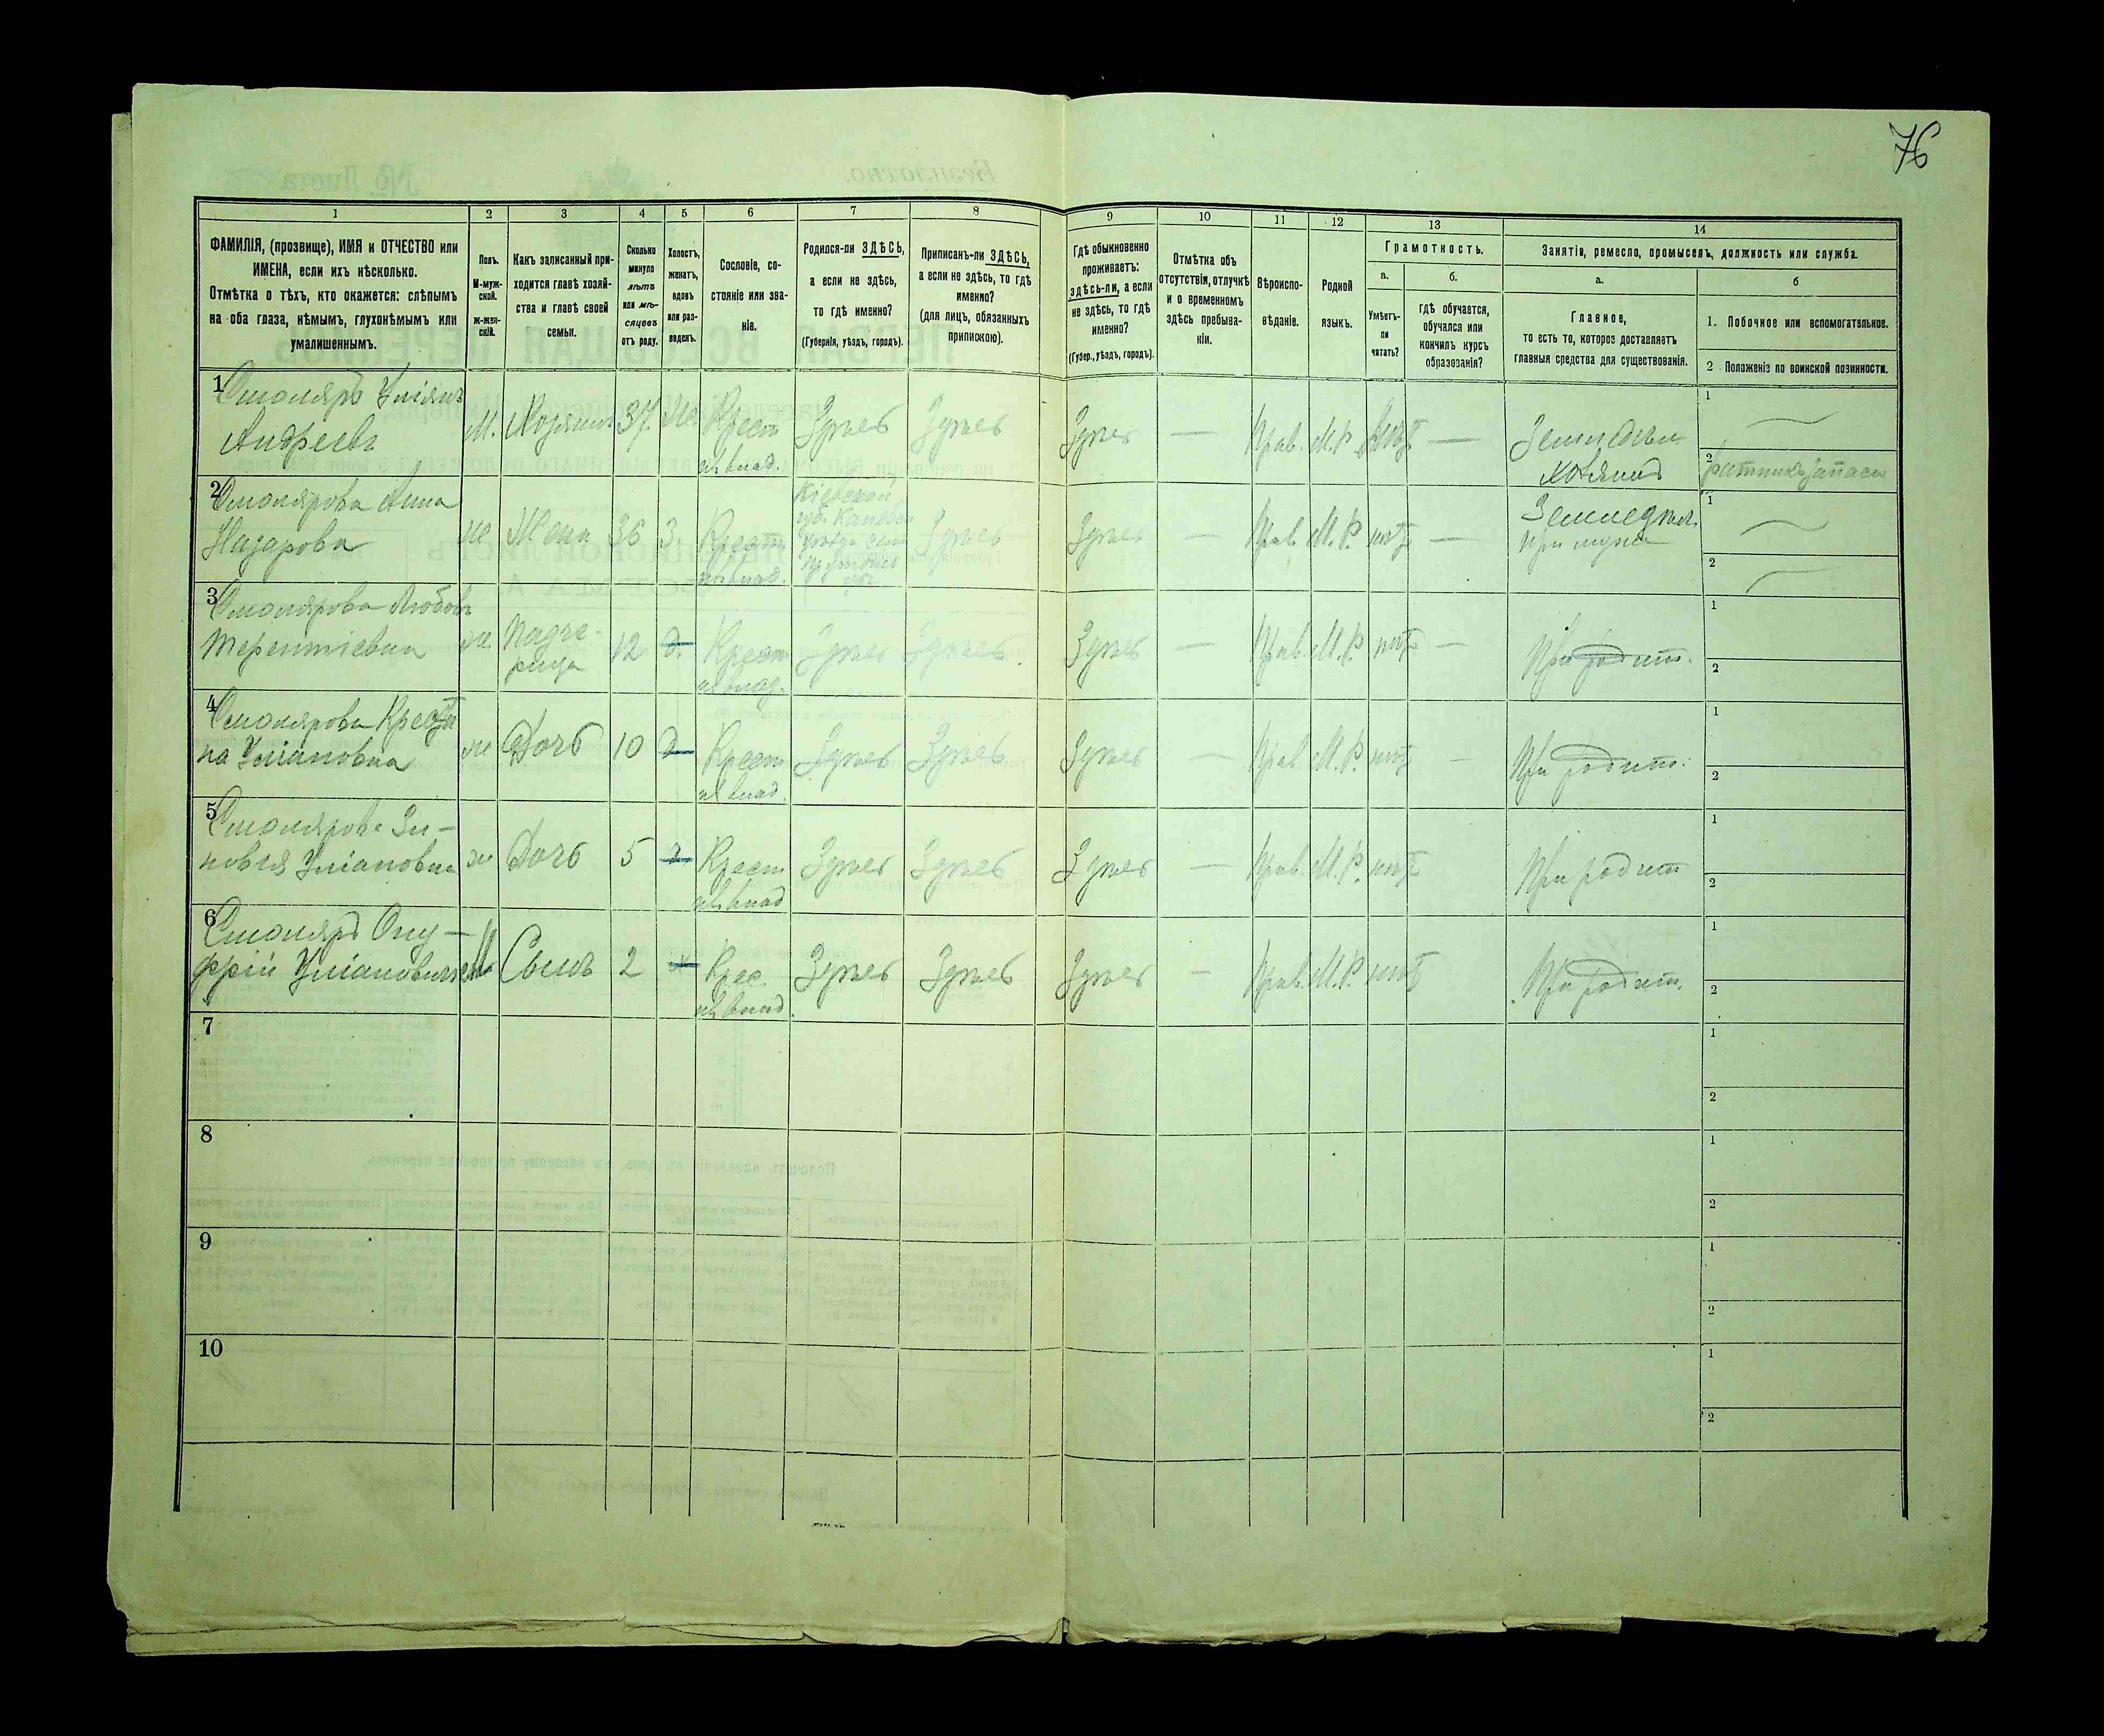 76
1 2 3 4 5 6 7 8 9 10 11 12 13 14
ФАМИЛІЯ, (прозвище), ИМЯ и ОТЧЕСТВО или
ИМЕНА, если ихъ нѣсколько.
Отмѣтка о тѣхъ, кто окажется: слѣпымъ
на оба глаза, нѣмымъ, глухонѣмымъ или
умалишеннымъ.
Полъ.
М-муж-
ской.
ж-жен-
скій.
Какъ записанный при-
ходится главѣ хозяй-
ства и главѣ своей
семьи.
Сколько
минуло
лѣтъ
или мѣ-
сяцевъ
отъ роду.
Холостъ,
женатъ,
вдовъ
или раз-
веденъ.
Сословіе, со-
стояніе или зва-
ніе.
Родился-ли ЗДѢСЬ,
а если не здѣсь,
то гдѣ именно?
(Губернія, уѣздъ, городъ).
Приписанъ-ли ЗДѢСЬ,
а если не здѣсь, то гдѣ
именно?
(для лицъ, обязанныхъ
припискою).
Гдѣ обыкновенно
проживаетъ:
здѣсь-ли, а если
не здѣсь, то гдѣ
именно?
(Губер., уѣздъ, городъ).
Отмѣтка объ
отсутствіи, отлучкѣ
и о временномъ
здѣсь пребыва-
ніи.
Вѣроиспо-
вѣданіе.
Родной
языкъ.
Грамотность.
а.
Умѣетъ-
ли
читать?
б.
гдѣ обучается,
обучался или
кончилъ курсъ
образованія?
Занятіе, ремесло, промыселъ, должность или служба.
а.
Главное,
то есть то, которое доставляетъ
главныя средства для существованія.
б
1. Побочное или вспомогательное.
2 Положеніе по воинской повинности.
1 Столяръ Уліянъ
Андреевъ
М. Хозяинъ 37 Же. Крест.
из влад.
Здѣсь Здѣсь Здѣсь — Прав. М.Р. нѣтъ —
Земледѣл.
хозяинъ
1
2 ратникъ запаса
2 Столярова Анна
Назарова
же Жена 36 З. Крест.
из влад.
Кіевской
губ. Каневск
уѣзда села
Здѣсь Здѣсь — Прав. М.Р. нѣтъ —
Земледѣл.
при мужѣ
1
2
3 Столярова Любовь
Терентіевна
же Падче-
рица
12 д. Крест
из влад.
Здѣсь Здѣсь Здѣсь — Прав. М.Р. нѣтъ —
При родит.
1
2
4 Столярова Крести
на Уліановна
же Дочь 10 д Крест
из влад.
Здѣсь Здѣсь Здѣсь — Прав. М.Р. нѣтъ —
При родит.
1
2
5 Столярова Зи-
новія Уліановна
же Дочь 5 д Крест
из влад
Здѣсь Здѣсь Здѣсь — Прав. М.Р. нѣтъ
При родит
1
2
6 Столяръ Ону-
фрій Уліановичъ
М Сынъ 2 Крес.
из влад.
Здѣсь Здѣсь Здѣсь — Прав. М.Р. нѣтъ
При родит.
1
2
7
1
2
8
1
2
9
1
2
10
1
2